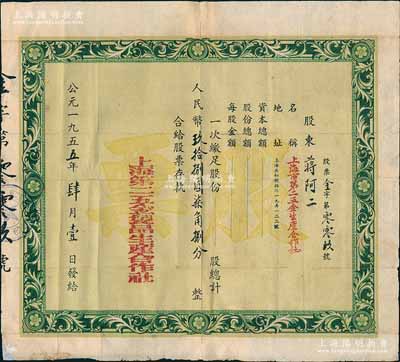 上海陽明拍賣
股票金字第零零玖號
股東 蔣阿二
名稱 上海市第二五金生產合作社
地址
資本總額
股份總額
每股金額
一次繳足股份 股總計
人民幣玖拾捌圓柒角捌分 整
合給股票存執
上海第二五金製品生產合作社
公元一九五五年肆月壹日發給
金字第零零玖號
股票